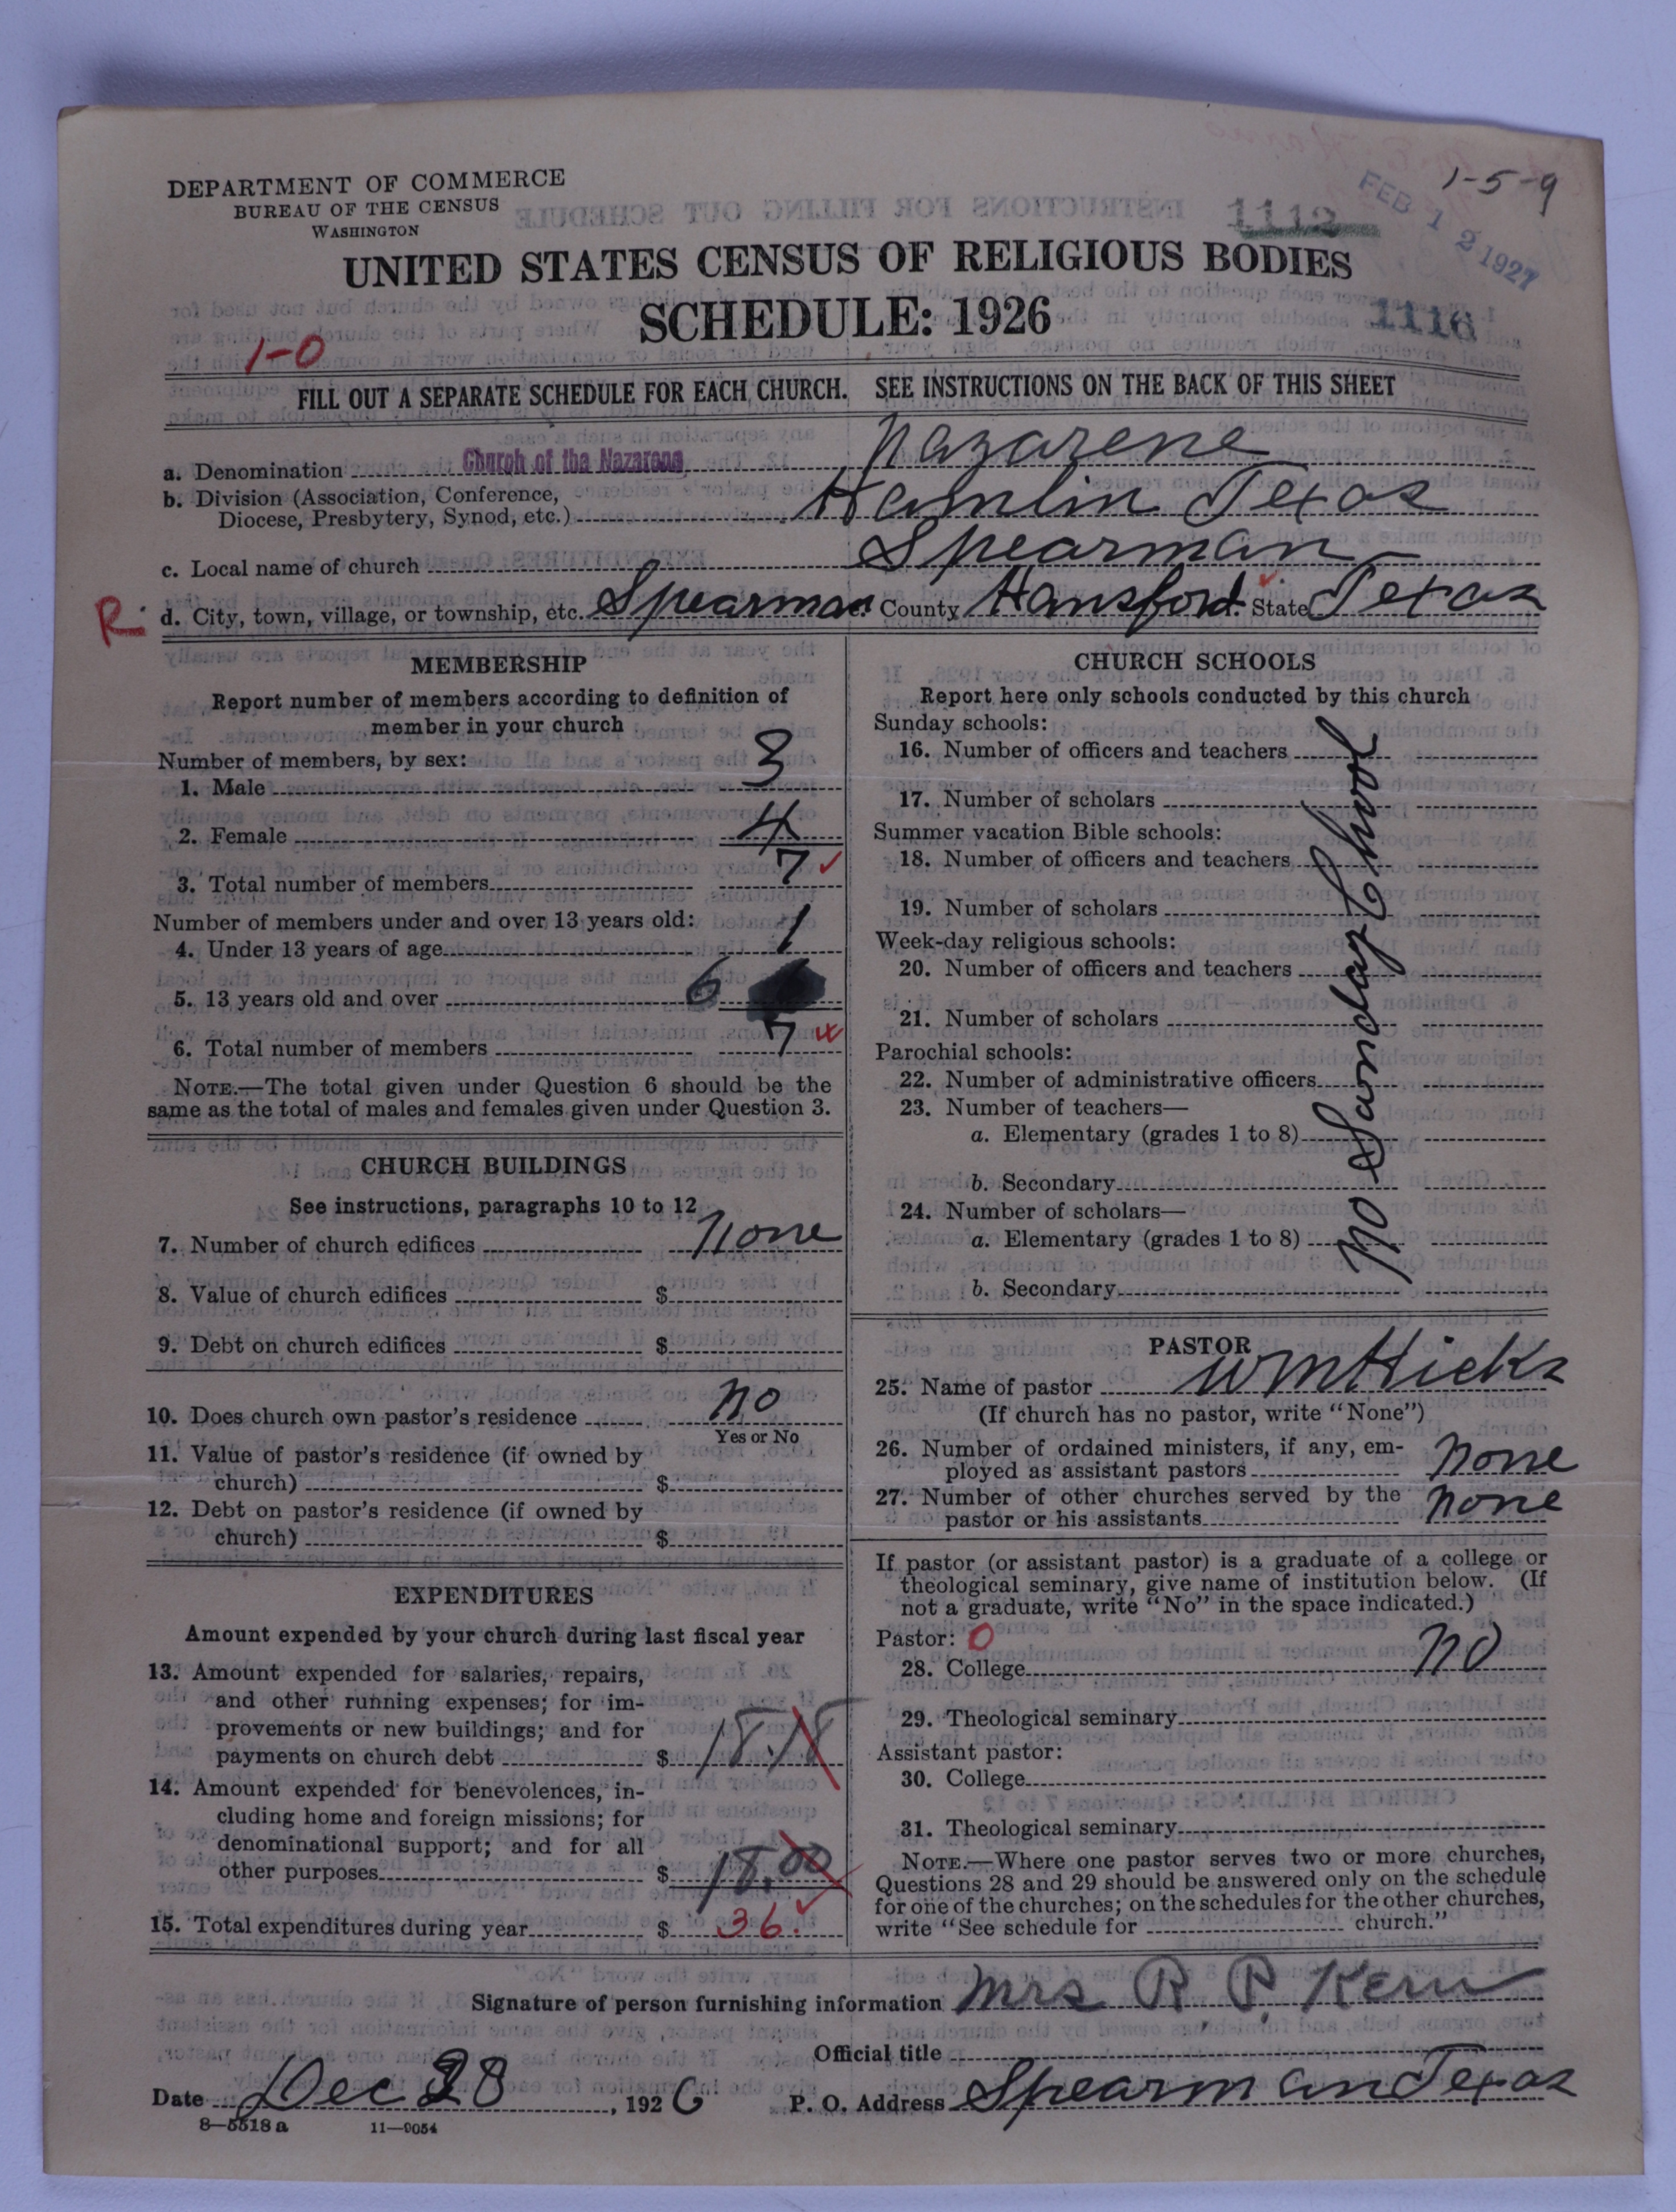 DEPARTMENT OF COMMERCE
BUREAU OF THE CENSUS
WASHINGTON
1-5-9
FEB 12 1927
1112
UNITED STATES CENSUS OF RELIGIOUS BODIES
SCHEDULE: 1926
1116
1-0
FILL OUT A SEPARATE SCHEDULE FOR EACH CHURCH. SEE INSTRUCTIONS ON THE BACK OF THIS SHEET
a. Denomination Church of the Nazarene Nazarene
b. Division (Association, Conference,
Diocese, Presbytery, Synod, etc.) Hamlin Texas
c. Local name of church Spearman
R. d. City, town, village, or township, etc. Spearman County Hansford State Texas
MEMBERSHIP
Report number of members according to definition of
member in your church
Number of members, by sex:
1. Male 3
2. Female 4
3. Total number of members 7
Number of members under and over 13 years old:
4. Under 13 years of age 1
5. 13 years old and over 6
6. Total number of members 7
NOTE.—The total given under Question 6 should be the
same as the total of males and females given under Question 3.
CHURCH BUILDINGS
See instructions, paragraphs 10 to 12
7. Number of church edifices None
8. Value of church edifices $
9. Debt on church edifices $
10. Does church own pastor's residence No
Yes or No
11. Value of pastor's residence (if owned by
church) $
12. Debt on pastor's residence (if owned by
church) $
EXPENDITURES
Amount expended by your church during last fiscal year
13. Amount expended for salaries, repairs,
and other running expenses; for im-
provements or new buildings; and for
payments on church debt $ 18.18
14. Amount expended for benevolences, in-
cluding home and foreign missions; for
denominational support; and for all
other purposes $ 18.00
15. Total expenditures during year $ 36.
CHURCH SCHOOLS
Report here only schools conducted by this church
Sunday schools:
16. Number of officers and teachers
17. Number of scholars
Summer vacation Bible schools:
18. Number of officers and teachers
19. Number of scholars
Week-day religious schools:
20. Number of officers and teachers
21. Number of scholars
Parochial schools:
22. Number of administrative officers
23. Number of teachers—
a. Elementary (grades 1 to 8)
b. Secondary
24. Number of scholars—
a. Elementary (grades 1 to 8)
b. Secondary
No Sunday School
PASTOR
25. Name of pastor Wm Hicks
(If church has no pastor, write "None")
26. Number of ordained ministers, if any, em-
ployed as assistant pastors None
27. Number of other churches served by the
pastor or his assistants None
If pastor (or assistant pastor) is a graduate of a college or
theological seminary, give name of institution below. (If
not a graduate, write "No" in the space indicated.)
Pastor: 0
28. College No
29. Theological seminary
Assistant pastor:
30. College
31. Theological seminary
NOTE.—Where one pastor serves two or more churches,
Questions 28 and 29 should be answered only on the schedule
for one of the churches; on the schedules for the other churches,
write "See schedule for church."
Signature of person furnishing information Mrs R. P. Kern
Official title
Date Dec 28, 1926 P. O. Address Spearman Texas
8-5518a 11-9054